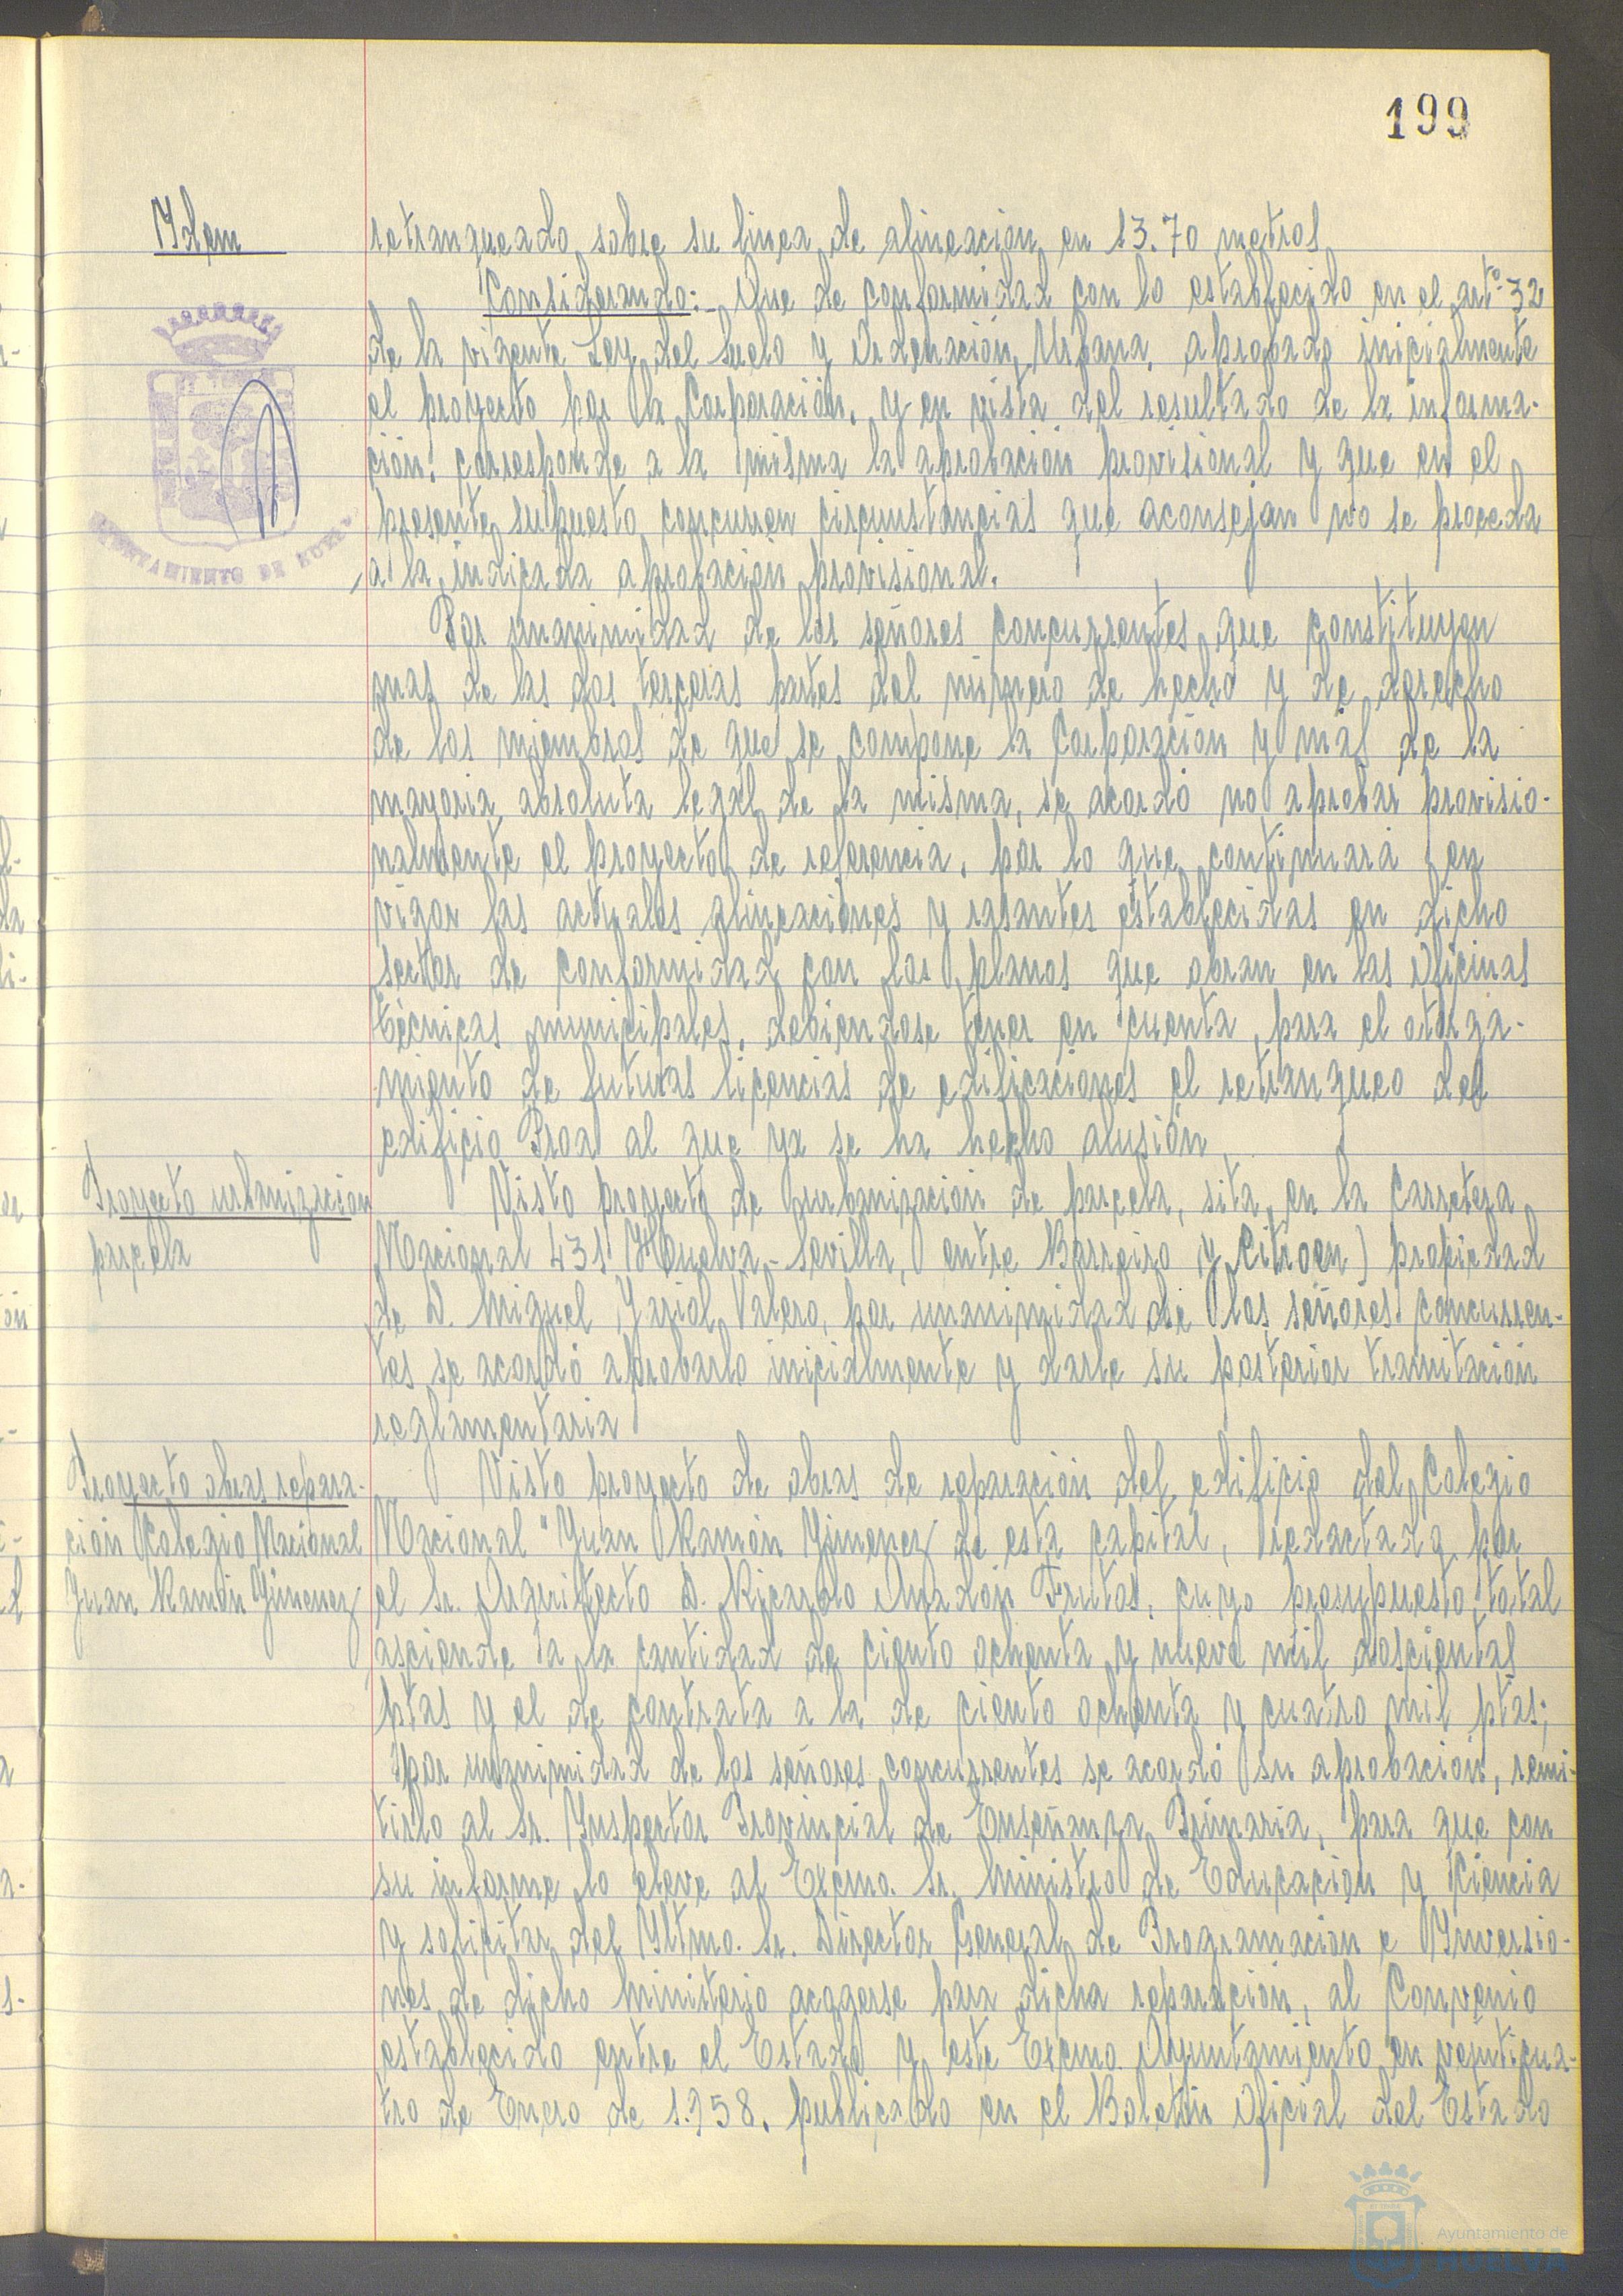 199
Idem
retranqueado sobre su linea de alineación en 13.70 metros
Considerando:- Que de conformidad con lo establecido en el artº 32
de la vigente Ley del Suelo y Ordenación Urbana, aprobado inicialmente
el proyecto por la Corporación, y en vista del resultado de la informa-
ción, corresponde a la misma la aprobación provisional y que en el
presente supuesto concurren circunstancias que aconsejan no se proceda
a la indicada aprobación provisional.
Por unanimidad de los señores concurrentes que constituyen
mas de las dos terceras partes del número de hecho y de derecho
de los miembros de que se compone la Corporación y más de la
mayoria absoluta legal de la misma, se acordó no aprobar provisio-
nalmente el proyecto de referencia, por lo que continuará en
vigor las actuales alineaciones y rasantes establecidas en dicho
sector de conformidad con los planos que obran en las Oficinas
técnicas municipales, debiendose tener en cuenta para el otorga-
miento de futuras licencias de edificaciones el retranqueo del
edificio Proa al que ya se ha hecho alusión
Proyecto urbanización
parcela
Visto proyecto de urbanización de parcela, sita en la Carretera
Nacional 431 (Huelva-Sevilla, entre Barreiro y Citroen) propiedad
de D. Miguel Valero, por unanimidad de los señores concurren-
tes se acordó aprobarlo inicialmente y darle su posterior tramitación
reglamentaria
Proyecto obras repara-
ción Colegio Nacional
Juan Ramón Gimenez
Visto proyecto de obras de reparación del edificio del Colegio
Nacional "Juan Ramón Gimenez de esta capital, redactada por
el Sr. Arquitecto D. Ricardo Anadón Frutos, cuyo presupuesto total
asciende a la cantidad de ciento ochenta y nueve mil doscientas
ptas y el de contrata a la de ciento ochenta y cuatro mil ptas;
por unanimidad de los señores concurrentes se acordó su aprobación, remi-
tirlo al Sr. Inspector Provincial de Enseñanza Primaria, para que con
su informe lo eleve al Excmo. Sr. Ministro de Educación y Ciencia
y solicitar del Iltmo. Sr. Director General de Programación e Inversio-
nes de dicho Ministerio acogerse para dicha reparación, al Convenio
establecido entre el Estado y este Excmo. Ayuntamiento en veinticua-
tro de Enero de 1.958, publicado en el Boletin Oficial del Estado
AYUNTAMIENTO DE HUELVA
Ayuntamiento de
HUELVA